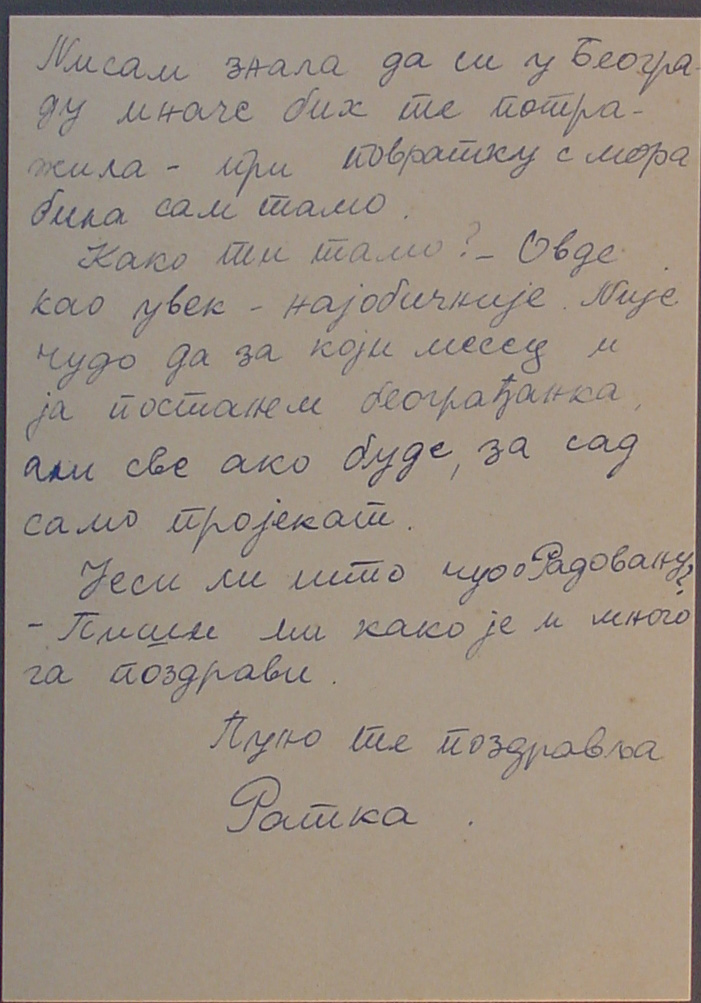 Нисам знала да си у Београ-
ду иначе бих те потра-
жила - при повратку с мора
била сам тамо.
Како ти тамо? - Овде
као увек - најобичније. Није
чудо да за који месец и
ја постанем београђанка,
али све ако буде, за сад
само пројекат.
Јеси ли што чуо о Радовану?
- Пиши ми како је и много
га поздрави.
Пуно те поздравља
Ратка.